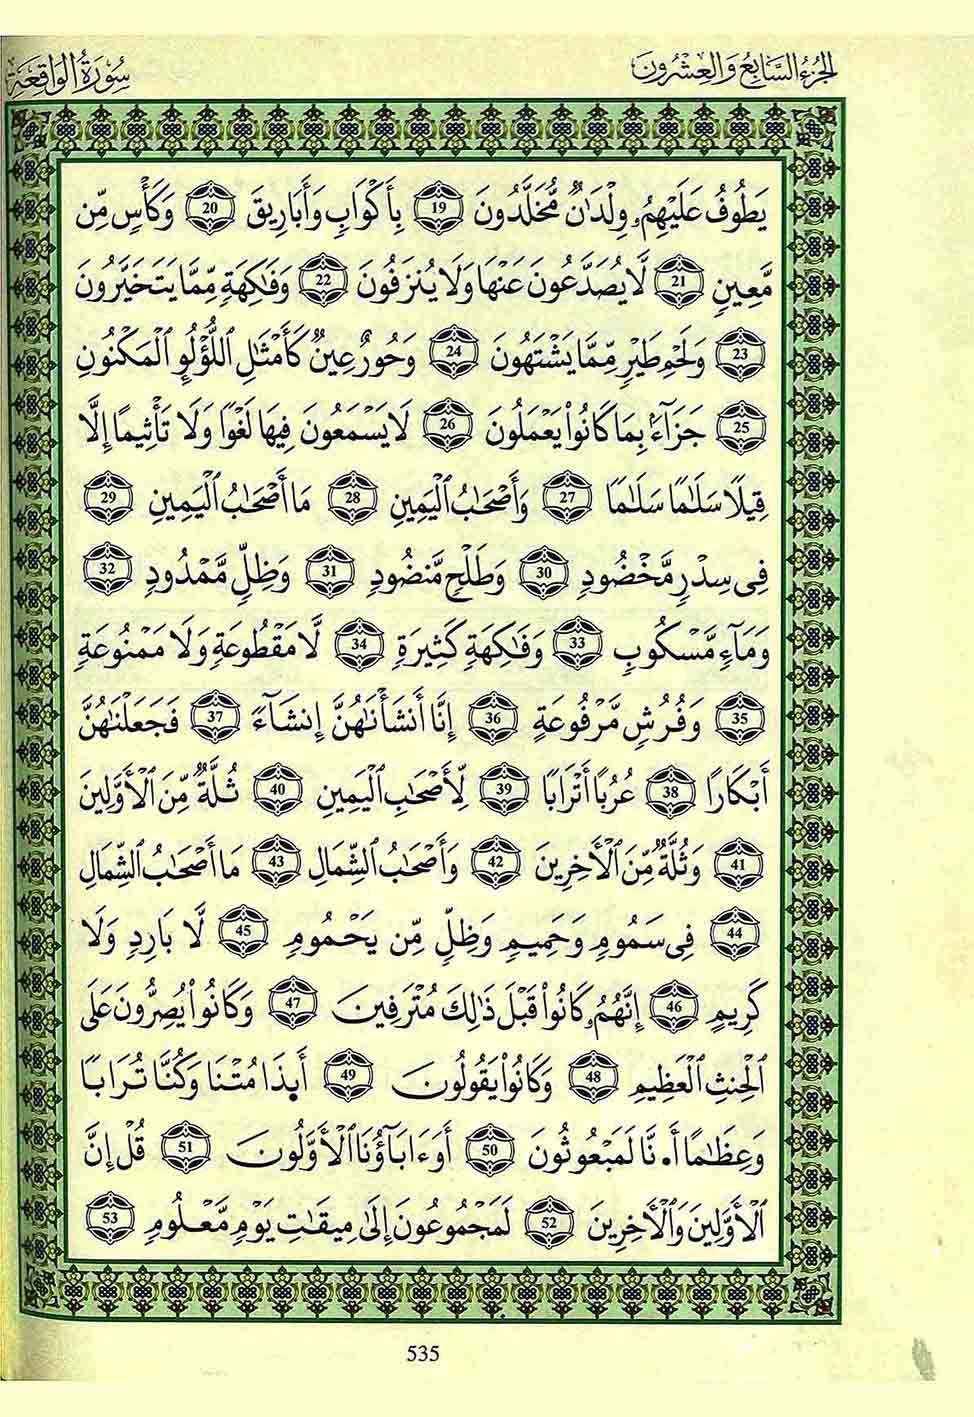 الجزء السابع والعشرون
سورة الواقعة
يَطُوفُ عَلَيْهِمُۥ وِلْدَٰنٌ مُّخَلَّدُونَ 19 بِأَكْوَابٍ وَأَبَارِيقَ 20 وَكَأْسٍ مِّن
مَّعِينٍ 21 لَّا يُصَدَّعُونَ عَنْهَا وَلَا يُنزَفُونَ 22 وَفَٰكِهَةٍ مِّمَّا يَتَخَيَّرُونَ
23 وَلَحْمِ طَيْرٍ مِّمَّا يَشْتَهُونَ 24 وَحُورٌ عِينٌ كَأَمْثَٰلِ ٱللُّؤْلُوِٕ ٱلْمَكْنُونِ
25 جَزَآءَۢ بِمَا كَانُوا۟ يَعْمَلُونَ 26 لَا يَسْمَعُونَ فِيهَا لَغْوًا وَلَا تَأْثِيمًا إِلَّا
قِيلًا سَلَٰمًا سَلَٰمًا 27 وَأَصْحَٰبُ ٱلْيَمِينِ 28 مَا أَصْحَٰبُ ٱلْيَمِينِ 29
فِى سِدْرٍ مَّخْضُودٍ 30 وَطَلْحٍ مَّنضُودٍ 31 وَظِلٍّ مَّمْدُودٍ 32
وَمَآءٍ مَّسْكُوبٍ 33 وَفَٰكِهَةٍ كَثِيرَةٍ 34 لَّا مَقْطُوعَةٍ وَلَا مَمْنُوعَةٍ
35 وَفُرُشٍ مَّرْفُوعَةٍ 36 إِنَّا أَنشَأْنَٰهُنَّ إِنشَآءً 37 فَجَعَلْنَٰهُنَّ
أَبْكَارًا 38 عُرُبًا أَتْرَابًا 39 لِّأَصْحَٰبِ ٱلْيَمِينِ 40 ثُلَّةٌ مِّنَ ٱلْأَوَّلِينَ
41 وَثُلَّةٌ مِّنَ ٱلْأَخِرِينَ 42 وَأَصْحَٰبُ ٱلشِّمَالِ 43 مَا أَصْحَٰبُ ٱلشِّمَالِ
44 فِى سَمُومٍ وَحَمِيمٍ وَظِلٍّ مِّن يَحْمُومٍ 45 لَّا بَارِدٍ وَلَا
كَرِيمٍ 46 إِنَّهُمُۥ كَانُوا۟ قَبْلَ ذَٰلِكَ مُتْرَفِينَ 47 وَكَانُوا۟ يُصِرُّونَ عَلَى
ٱلْحِنثِ ٱلْعَظِيمِ 48 وَكَانُوا۟ يَقُولُونَ 49 أَىِٕذَا مُتْنَا وَكُنَّا تُرَابًا
وَعِظَٰمًا أَ۟نَّا لَمَبْعُوثُونَ 50 أَوَءَابَآؤُنَا ٱلْأَوَّلُونَ 51 قُلْ إِنَّ
ٱلْأَوَّلِينَ وَٱلْأَخِرِينَ 52 لَمَجْمُوعُونَ إِلَىٰ مِيقَٰتِ يَوْمٍ مَّعْلُومٍ 53
535